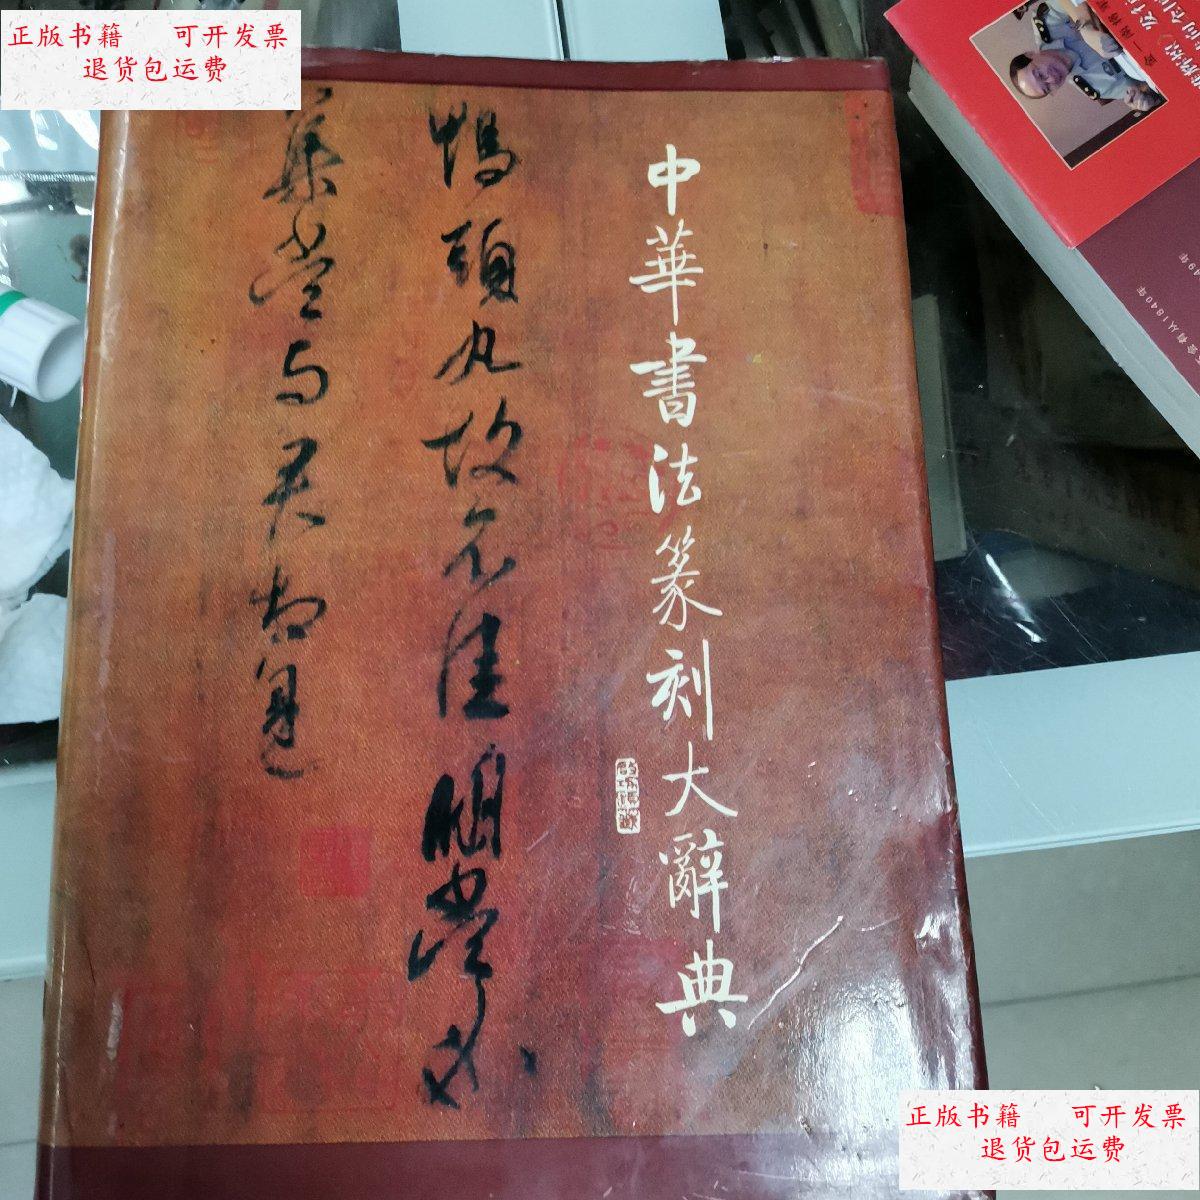 正版书籍 可开发票
退货包运费
中華書法篆刻大辭典
鴨頭丸故不佳明當必
集當与君相見
1840年
正版书籍 可开发票
退货包运费